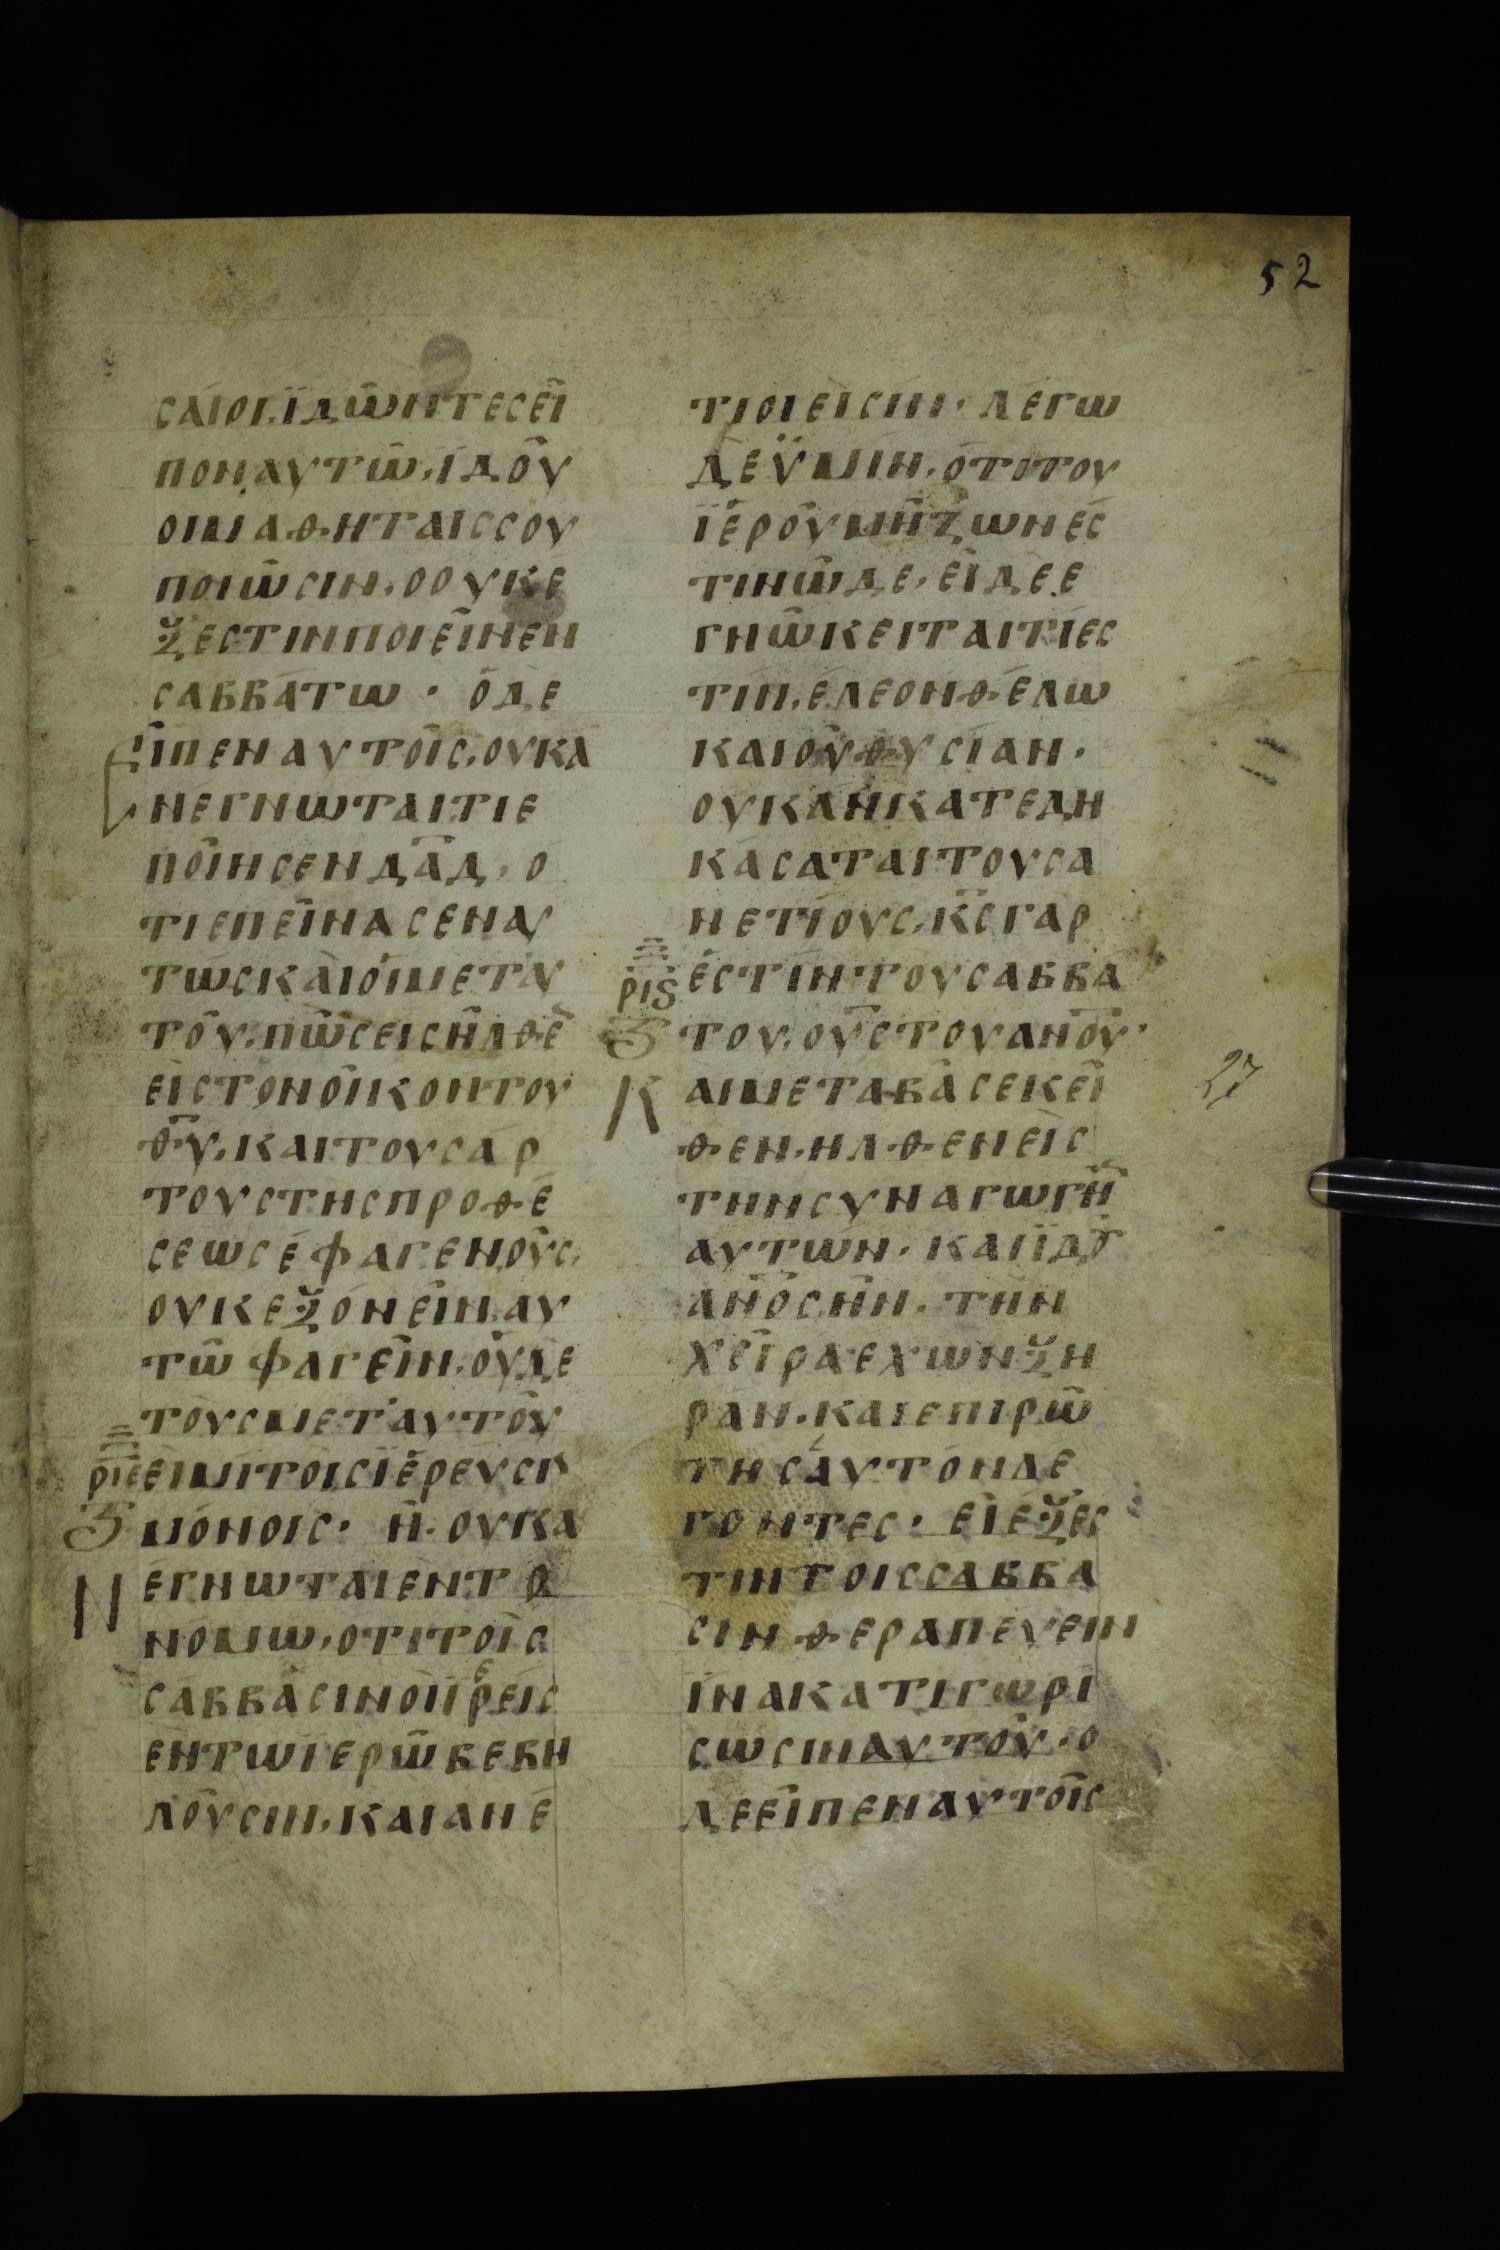 52
ϹΑΙΟΙ.ΪΔΩΝΤΕϹΕΙ
ΠΟΝΑΥΤΩ.ΙΔΟΥ
ΟΙΜΑΘΗΤΑΙϹϹΟΥ
ΠΟΙΩϹΙΝ.ΟΟΥΚΕ
ΞΕϹΤΙΝΠΟΙΕΙΝΕΝ
ϹΑΒΒΑΤΩ · ΟΔΕ
ΕΙΠΕΝΑΥΤΟΙϹ.ΟΥΚΑ
ΝΕΓΝΩΤΑΙΤΙΕ
ΠΟΙΗϹΕΝΔΑΔ.Ο
ΤΙΕΠΕΙΝΑϹΕΝΑΥ
ΤΩϹΚΑΙΟΙΜΕΤΑΥ
ΤΟΥ.ΠΩϹΕΙϹΗΛΘΕ
ΕΙϹΤΟΝΟΙΚΟΝΤΟΥ
ΘΥ.ΚΑΙΤΟΥϹΑΡ
ΤΟΥϹΤΗϹΠΡΟΘΕ
ϹΕΩϹΕΦΑΓΕΝ.ΟΥϹ.
ΟΥΚΕΞΟΝΕΙΝ.ΑΥ
ΤΩΦΑΓΕΙΝ.ΟΥΔΕ
ΤΟΥϹΜΕΤ'ΑΥΤΟΥ
ΡΙΕ ΕΙΜΙΤΟΙϹΪΕΡΕΥϹΙΝ
ΜΟΝΟΙϹ· Η·ΟΥΚΑ
Ν ΕΓΝΩΤΑΙΕΝΤΩ
ΝΟΜΩ.ΟΤΙΤΟΙϹ
ϹΑΒΒΑϹΙΝΟΙΪΡΕΙϹ
ΕΝΤΩΙΕΡΩΒΕΒΗ
ΛΟΥϹΙΝ.ΚΑΙΑΝΕ
ΤΙΟΙΕΙϹΙΝ· ΛΕΓΩ
ΔΕΫΜΙΝ.ΟΤΙΤΟΥ
ΪΕΡΟΥΜΗΖΩΝΕϹ
ΤΙΝΩΔΕ.ΕΙΔΕΕ
ΓΝΩΚΕΙΤΑΙΤΙΕϹ
ΤΙΠ.ΕΛΕΟΝΘΕΛΩ
ΚΑΙΟΥΘΥϹΙΑΝ·
ΟΥΚΑΝΚΑΤΕΔΗ
ΚΑϹΑΤΑΙΤΟΥϹΑ
ΝΕΤΙΟΥϹ.ΚϹΓΑΡ
ΡΙϚ ΕϹΤΙΝ·ΤΟΥϹΑΒΒΑ
ΤΟΥ.ΟΥϹΤΟΥΑΝΟΥ·
ΚΑΙΜΕΤΑΒΑϹΕΚΕΙ 27
ΘΕΝ.ΗΛΘΕΝΕΙϹ
ΤΗΝϹΥΝΑΓΩΓΗ
ΑΥΤΩΝ· ΚΑΙΪΔΥ
ΑΝΟϹΗΝ·ΤΗΝ
ΧΕΙΡΑΕΧΩΝΞΗ
ΡΑΝ·ΚΑΙΕΠΙΡΩ
ΤΗϹΑΥΤΟΝΛΕ
ΓΟΝΤΕϹ· ΕΙΕΞΕϹ
ΤΙΝΤΟΙϹϹΑΒΒΑ
ϹΙΝΘΕΡΑΠΕΥΕΙΝ
ΪΝΑΚΑΤΙΓΩΡΙ
ϹΩϹΙΝΑΥΤΟΥ·Ο
ΔΕΕΙΠΕΝΑΥΤΟΙϹ